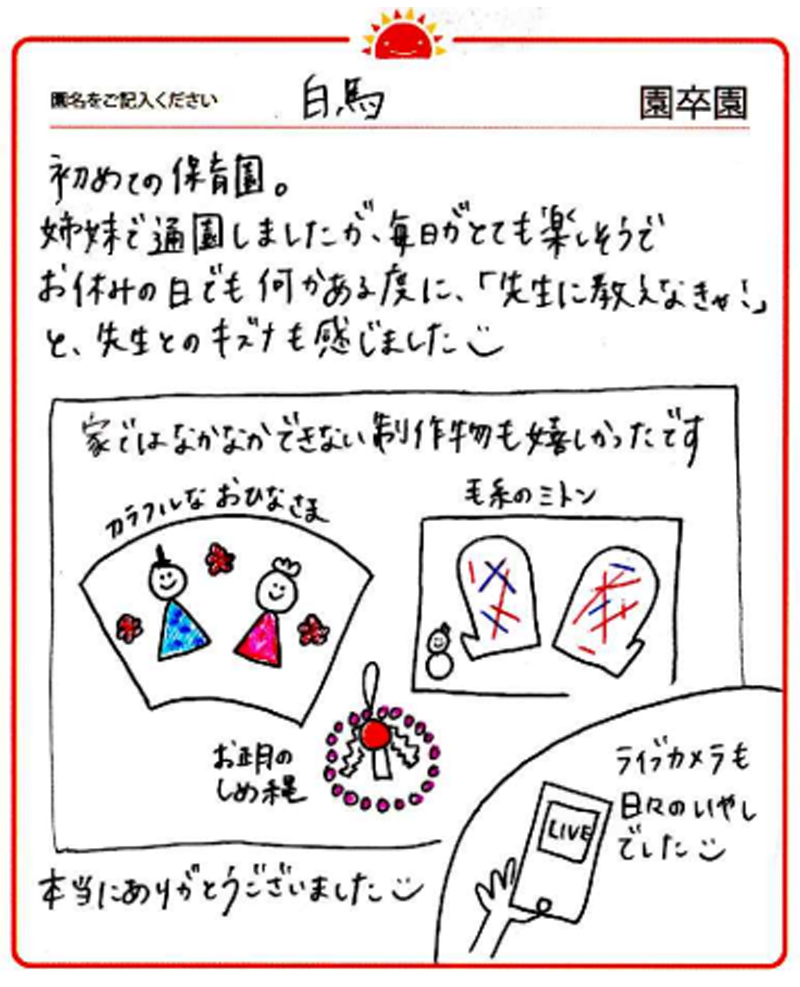 園名をご記入ください 白馬 園卒園
初めての保育園。
姉妹で通園しましたが、毎日がとても楽しそうで
お休みの日でも何かある度に、「先生に教えなきゃ!」
と、先生とのキズナも感じました
家ではなかなかできない制作物も嬉しかったです
カラフルなおひなさま
毛糸のミトン
お正月の
しめ縄
ライブカメラも
日々のいやし
でした
LIVE
本当にありがとうございました